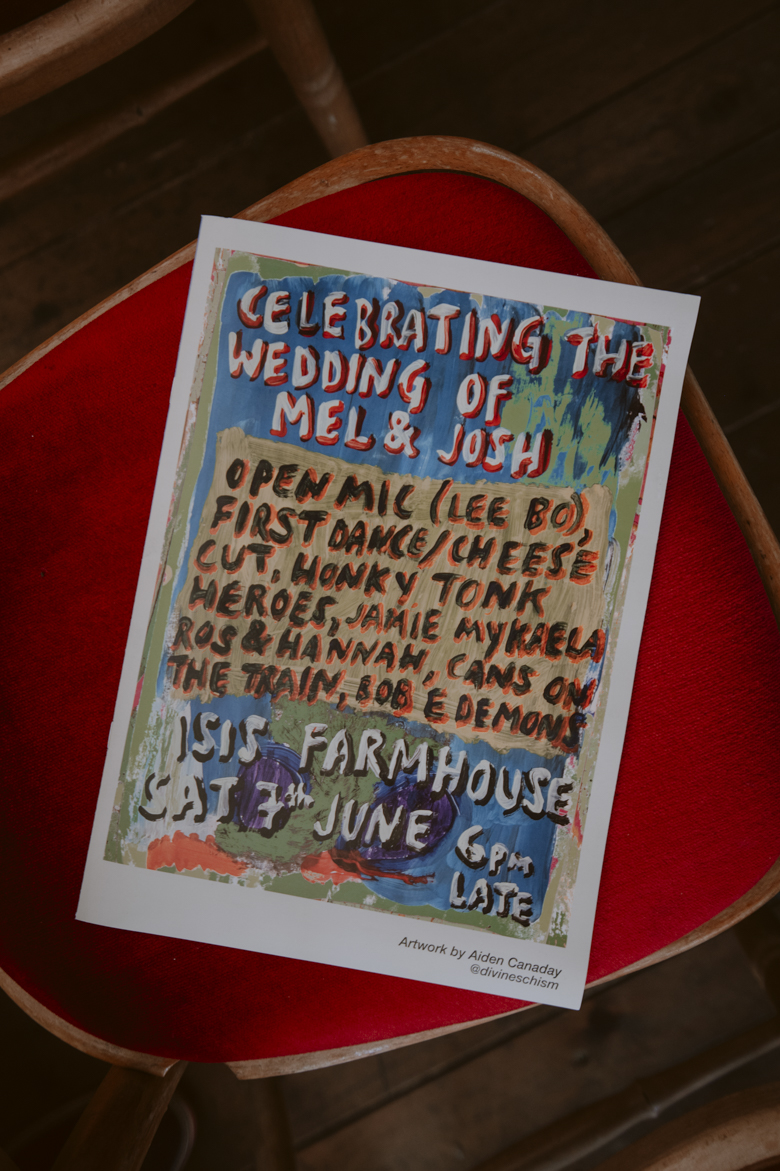 CELEBRATING THE
WEDDING OF
MEL & JOSH
OPEN MIC (LEE BO),
FIRST DANCE/CHEESE
CUT, HONKY TONK
HEROES, JAMIE MYKAELA
ROS & HANNAH, CANS ON
THE TRAIN, BOB E DEMONS
ISIS FARMHOUSE
SAT 7th JUNE
6PM
LATE
Artwork by Aiden Canaday
@divineschism